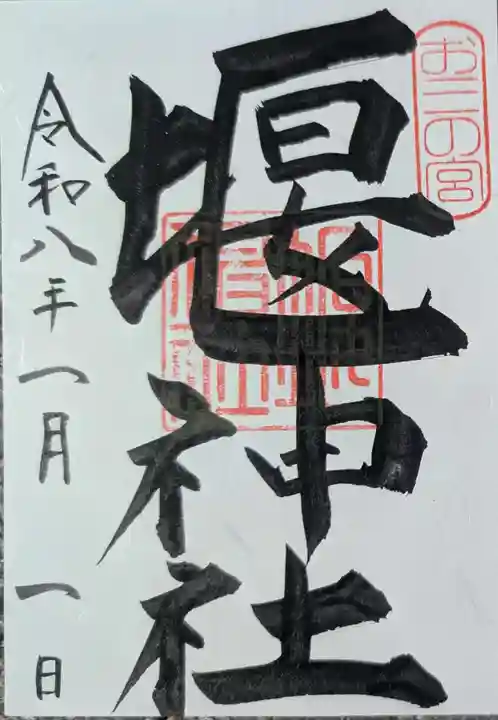 お三の宮
堰神社
令和八年一月一日